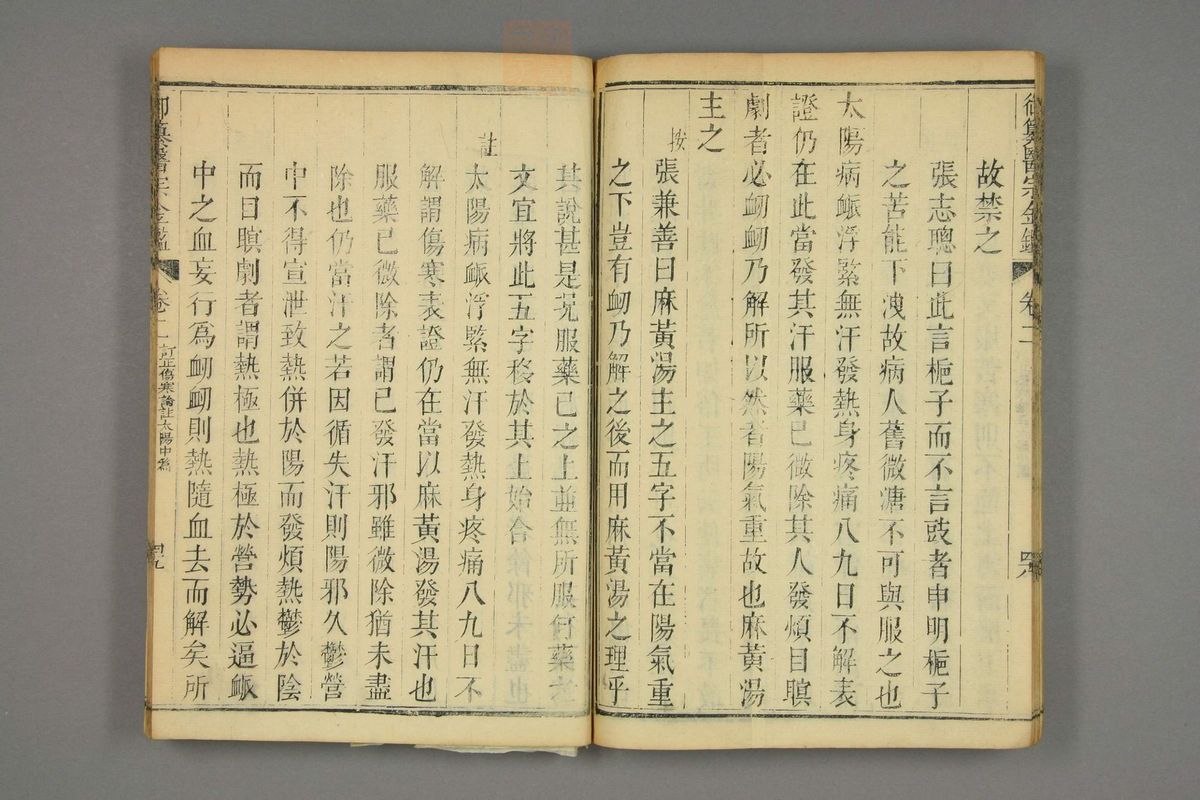 御纂醫宗金鑑 卷二 四八
故禁之
張志聰曰此言梔子而不言豉者申明梔子
之苦能下洩故病人舊微溏不可與服之也
太陽病脈浮緊無汗發熱身疼痛八九日不解表
證仍在此當發其汗服藥已微除其人發煩目瞑
劇者必衄衄乃解所以然者陽氣重故也麻黃湯
主之
按
張兼善曰麻黃湯主之五字不當在陽氣重
之下豈有衄乃解之後而用麻黃湯之理乎
其說甚是況服藥已之上並無所服何藥之
文宜將此五字移於其上始合
註
太陽病脈浮緊無汗發熱身疼痛八九日不
解謂傷寒表證仍在當以麻黃湯發其汗也
服藥已微除者謂已發汗邪雖微除猶未盡
除也仍當汗之若因循失汗則陽邪久鬱營
中不得宣泄致熱併於陽而發煩熱鬱於陰
而目瞑劇者謂熱極也熱極於營勢必逼脈
中之血妄行為衄衄則熱隨血去而解矣所
御纂醫宗金鑑 卷二 訂正傷寒論註太陽中篇 四九